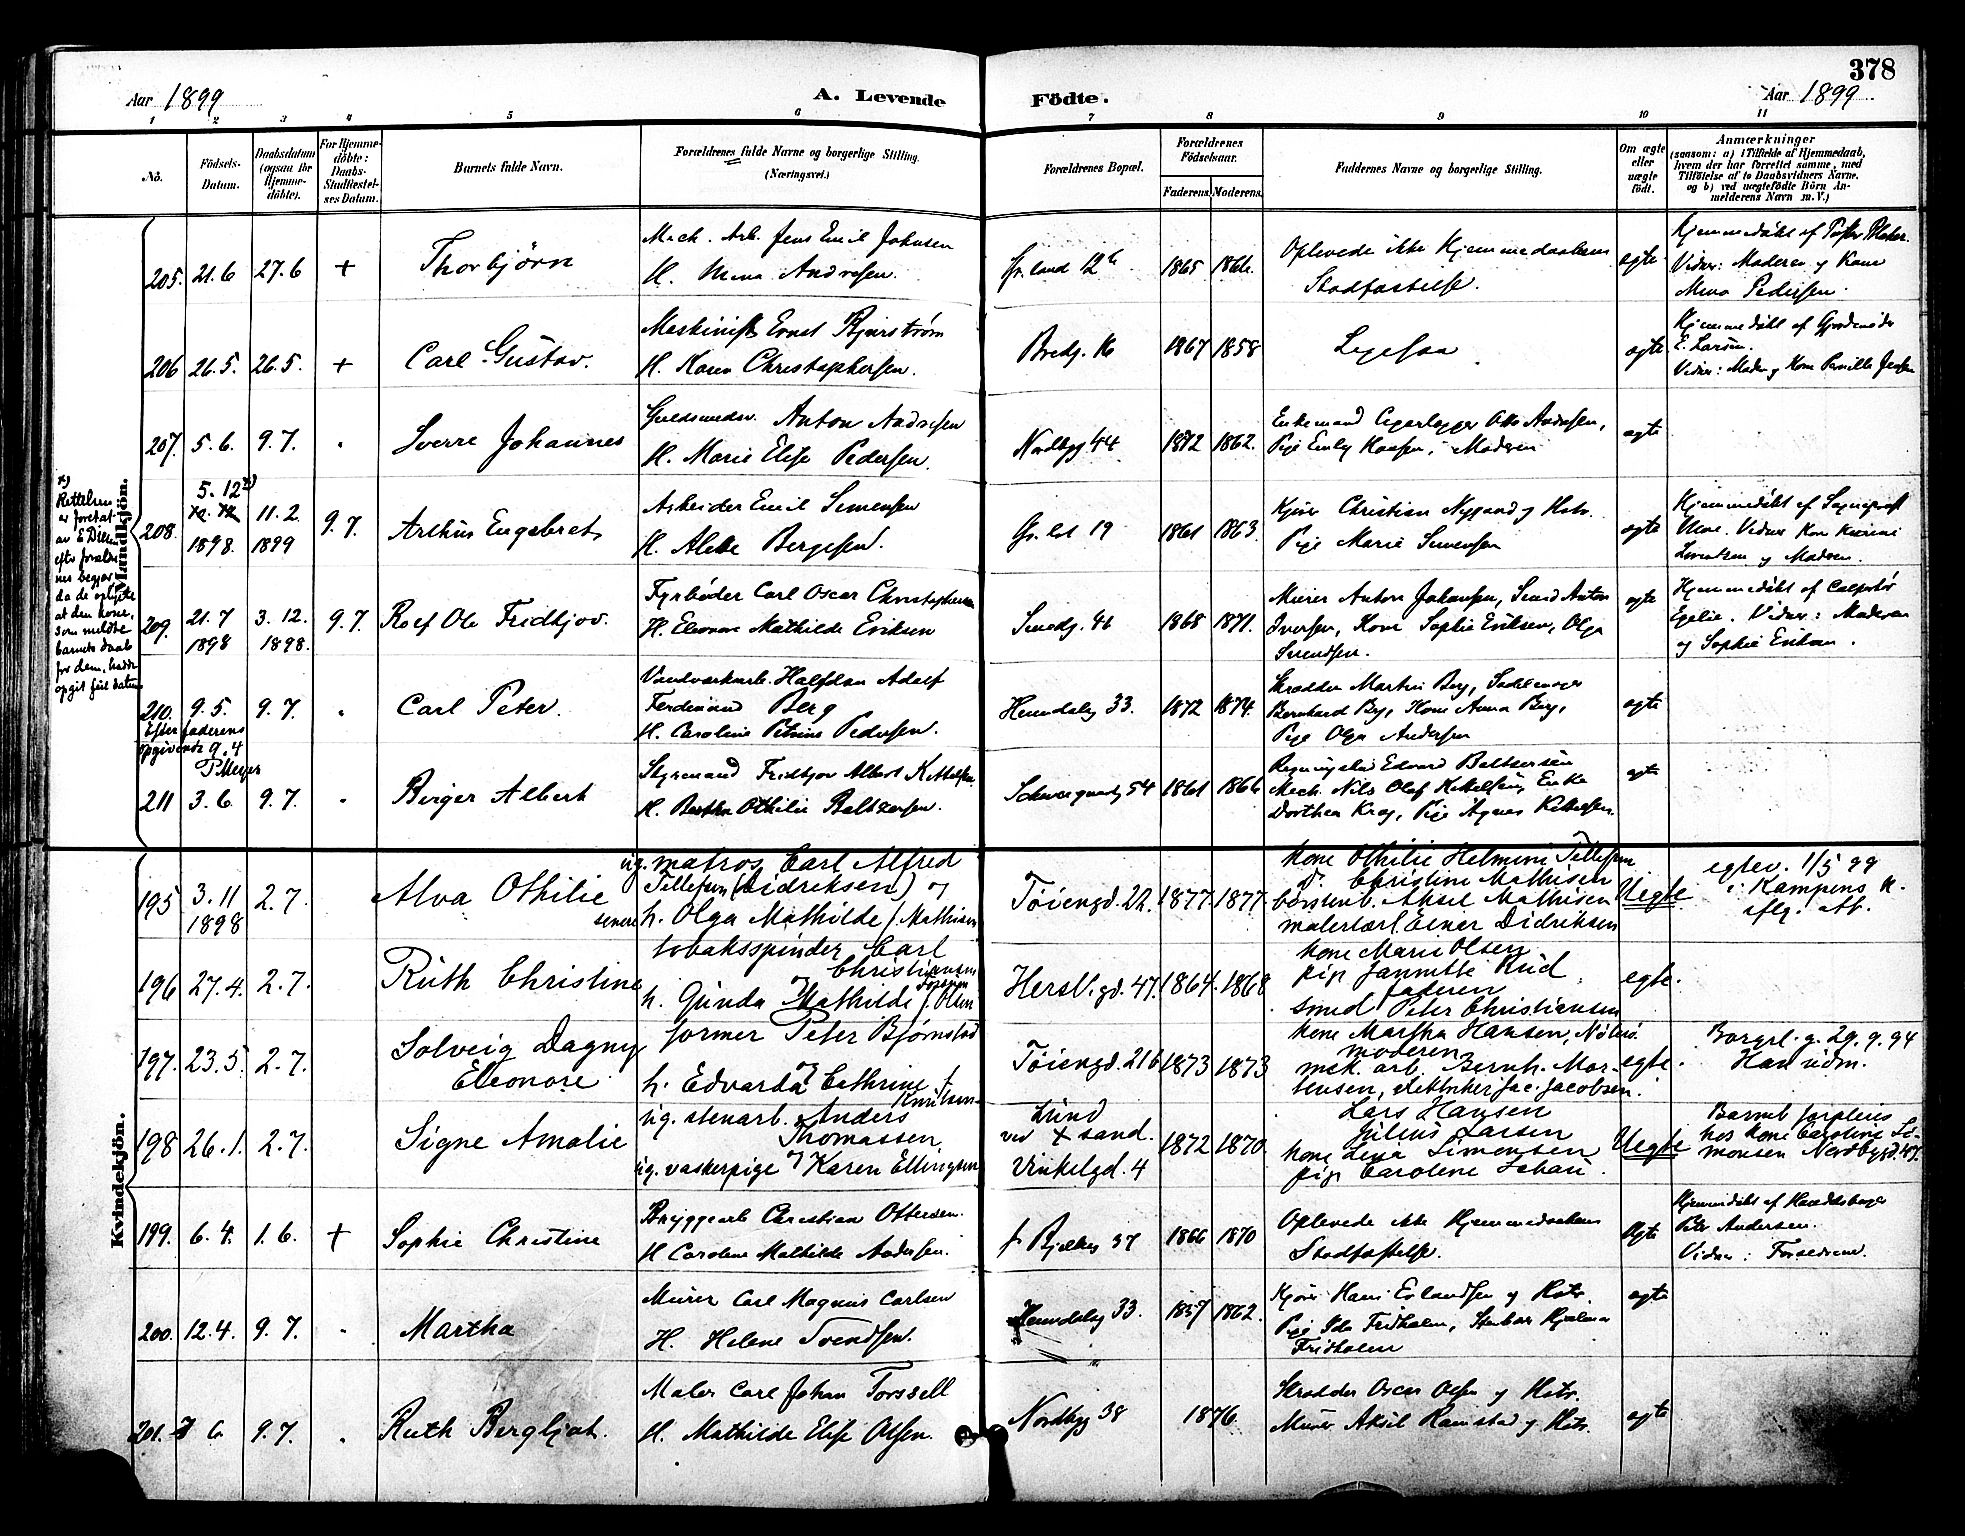 378
Aar 1899
A. Levende
Födte.
Aar 1899
1 2 3 4 5 6 7 8 9 10 11
No.
Födsels-
Datum.
Daabsdatum
(ogsaa for
Hjemme-
döbte).
For Hjemme-
döbte:
Daabs-
Stadfæstel-
ses Datum.
Barnets fulde Navn.
Forældrenes fulde Navne og borgerlige Stilling.
(Næringsvei.)
Forældrenes Bopæl.
Forældrenes
Födselsaar.
Faderens. Moderens.
Faddernes Navne og borgerlige Stilling.
Om ægte
eller
uægte
födt.
Anmærkninger
(saasom: a) i Tilfælde af Hjemmedaab,
hvem der har forrettet samme, med
Tilföielse af to Daabsvidners Navne,
og b) ved uægtefödte Börn An-
melderens Navn m.V.)
Mandkjön.
205. 21.6 27.6 + Thorbjörn
Mech. Arb. Jens Emil Johnsen
H. Mina Andresen.
Grland 12b 1865 1866.
Oplevede ikke Hjemmedaabens
Stadfæstelse.
ægte
Hjemmedöbt af
Vidner: Moderen og Kone
Mina Pedersen.
206 26.5. 26.5. + Carl Gustav.
Maskinist Ernst
H. Karen Christophersen.
Bredg. 16 1867 1858
Ligesaa
ægte
Hjemmedöbt af Gjordemoder
E. Larsen.
Vidner: Moder og Kone Pernille Jensen
207. 5.6. 9.7. " Sverre Johannes
Guldsmedsv. Anton Andresen
H. Marie Elise Pedersen.
Nordbyg 44 1872 1862.
Enkemand Cigarlægger Otto Andresen,
Pige Emily Hansen, Moderen
ægte
208. 5.12 x)
1898. 11.2.
1899 9.7. Arthur Engebret
Arbeider Emil Simensen
H. Alette Bergesen.
Gr. lst 19 1861 1863.
Kjører Christian Nygaard og Hstr.
Pige Marie Simensen
ægte
Hjemmedöbt af Sogneprest
Vidner Kone
Lorentzen og Moderen.
x)
Rettelsen
er foretat
av
efter forældre-
nes begjær,
da de oplyste
at den kone,
som meldte
barnets daab
for dem, hadde
opgit feil datum
209. 21.7
1898 3.12.
1898. 9.7. Rolf Ole Fridtjov.
Fyrböder Carl Oscar Christophersen
H. Eleonore Mathilde Eriksen
Smedg. 46 1868 1871.
Murer Anton Johansen, Smed Anton
Iversen, Kone Sophie Eriksen, Olga
Svendsen.
ægte
Hjemmedöbt af Colportör
Egelie. Vidner: Moderen
og Sophie Eriksen.
210. 9.5. 9.7. " Carl Peter.
Efter faderens
opgivende 9.4
P Meyer
Vandværkarb. Halfdan Adolf
Ferdinand Berg
H. Caroline Petrine Pedersen.
Heimdalsg 33. 1872 1874.
Skrædder Martin Berg, Sadelmager
Bernhard Berg, Kone Anna Berg,
Pige Olga Andersen
ægte
211 3.6. 9.7. " Birger Albert
Styrmand Fridtjov Albert Kittelsen
H. Bertha Othilie Baltzersen.
Schweigaardsg 54 1861 1866
Edvard Baltzersen
Mech. Nils Olaf Kittelsen, Enke
Dorthea Krog, Pige Agnes Kittelsen.
ægte
Kvindekjön.
195 3.11
1898 2.7. Alva Othilie
ug. matros Carl Alfred
Tillefsen (Didriksen) og
senere h. Olga Mathilde f. Mathisen
Tøiengd. 22. 1877. 1877.
kone Othilie Helmine Tillefsen
p. Christine Mathisen
børstenb. Aksel Mathisen
malerlærl. Einar Didriksen
Uegte
egtev. 1/5 99
i Kampens K.
iflg. att.
196 27.4. 2.7. Ruth Christine
tobaksspinder Carl
Christiansen
h. Gunda Mathilde f. Olsen
Hersl.gd. 47. 1864. 1868
kone Marie Olsen
pige Jannette Rud
faderen
smed Peter Christiansen
egte.
197. 23.5. 2.7. Solveig Dagny
Eleonore
former Peter Bjørnstad
h. Edvarda Cathrine f.
Knutsen
Tøiengd. 21b 1873 1873
kone Martha Hansen,
moderen
mek. arb. Bernh. Mor-
tensen, Jac. Jacobsen.
egte.
Borgrl. g. 29.9.94
Han udm.
198 26.1. 2.7. Signe Amalie
ug. stenarb. Anders
Thomassen
ug. vaskerpige Karen Ellingsen
Lund
ved Xsand.
Vinkelgd. 4 1872 1870
Lars Hansen
Julius Larsen
kone Lina Simonsen
pige Caroline Johans.
Uegte
Barnet forpleies
hos kone Caroline Si-
monsen Nordbygd. 47.
199. 6.4. 1.6. + Sophie Christine
Bryggearb Christian Ottersen.
H Caroline Mathilde Andersen.
f Bjelkes 37 1866 1870
Oplevede ikke Hjemmedaabens
Stadfæstelse.
ægte
Hjemmedöbt af
Peter Andersen.
Vidner: Forældrene.
200. 12.4. 9.7. " Martha
Murer Carl Magnus Carlsen
H. Helene Svendsen.
Heimdalsg 33. 1857 1862.
Kjører Hans Erlandsen og Hstr.
Pige Ida Fridholm, Hjalmar
Fridholm
ægte
201. 6 9.7. " Ruth Bergljot.
Maler Carl Johan Torssell
H. Mathilde Elise Olsen.
Nordbyg 38 1876.
Skrædder Oscar Olsen og Hstr.
Murer Aksel Ramstad og Hstr.
ægte